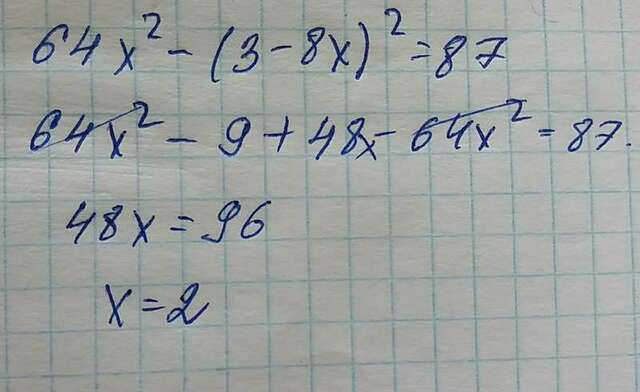 64x² - (3 - 8x)² = 87
64x² - 9 + 48x - 64x² = 87.
48x = 96
x = 2